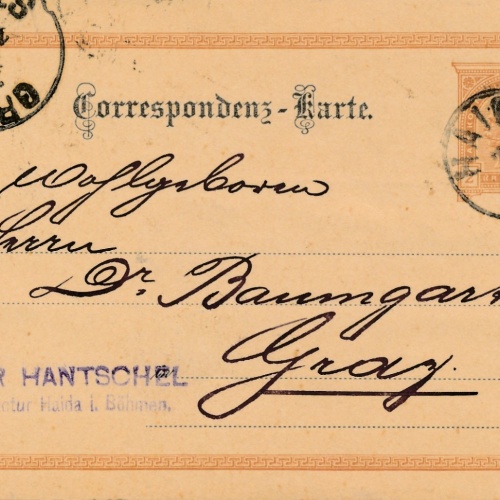 Correspondenz-Karte.
Wohlgeboren
Herrn
Dr. Baumgart
Graz.
R HANTSCHEL
ntur Haida i. Böhmen.
GR
HAID